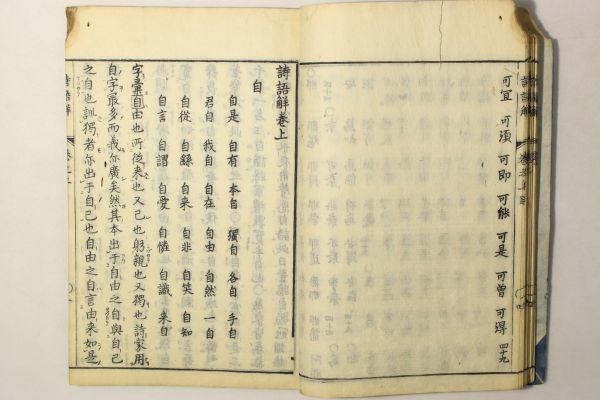 可宜 可須 可即 可能 可是 可曾 可得 四十九
詩語解卷上
自
自是 自有 本自 獨自 各自 手自
君自 我自 自在 自由 自然 一自
自從 自緣 自来 自非 自笑 自知
自言 自謂 自愛 自憐 自識 来自
字彙自由也所從来也又己也躬親也又獨也詩家用
自字最多而義亦廣矣然其本出于自由之自與自己
之自也訓獨者亦出于自己也自由之自言由来如是